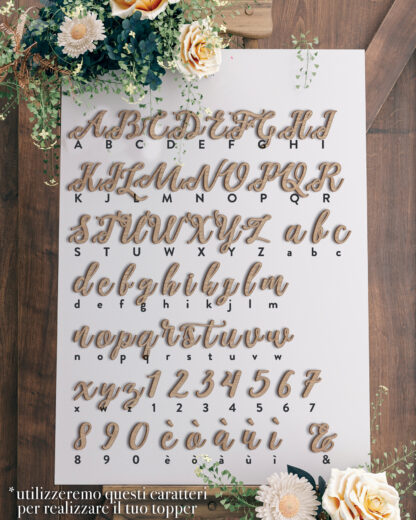 A B C D E F G H I
A B C D E F G H I
K J L M N O P Q R
K J L M N O P Q R
S T U W X Y Z a b c
S T U W X Y Z a b c
d e f g h i k y l m
d e f g h i k j l m
n o p q r s t u v w
n o p q r s t u v w
x y z 1 2 3 4 5 6 7
x w z 1 2 3 4 5 6 7
8 9 0 è ò à ù ì &
8 9 0 è ò à ù ì &
*utilizzeremo questi caratteri
per realizzare il tuo topper